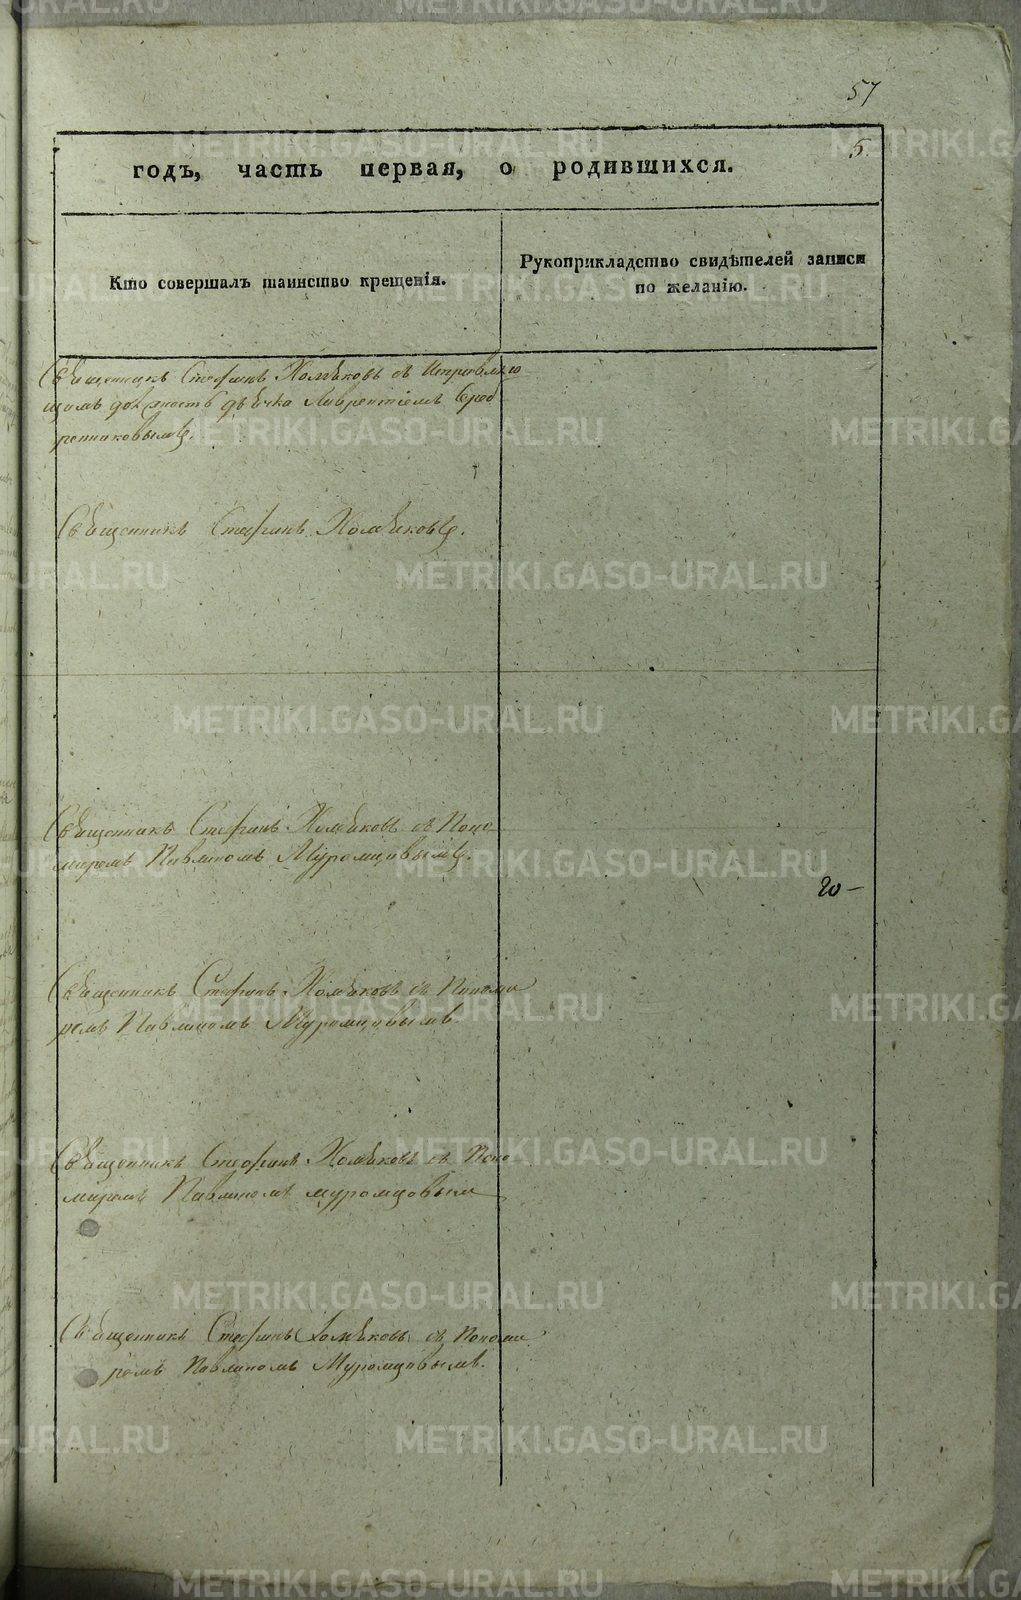 57
5.
годъ, часть первая, о родившихся.
Кто совершалъ таинство крещенія.
Рукоприкладство свидѣтелей записи
по желанію.
Священникъ Стефанъ Хомѣковъ съ исправляю
щимъ должность дьячка Лаврентіемъ Сереб
ренниковымъ.
Священникъ Стефанъ Хомѣковъ.
Священникъ Стефанъ Хомѣковъ съ Поно
маремъ Павлиномъ Муромцовымъ.
20-
Священникъ Стефанъ Хомѣковъ съ Понома
ремъ Павлиномъ Муромцовымъ.
Священникъ Стефанъ Хомѣковъ съ Поно
маремъ Павлиномъ Муромцовым
Священникъ Стефанъ Хомѣковъ съ Понома
ремъ Павлиномъ Муромцовымъ.
METRIKI.GASO-URAL.RU